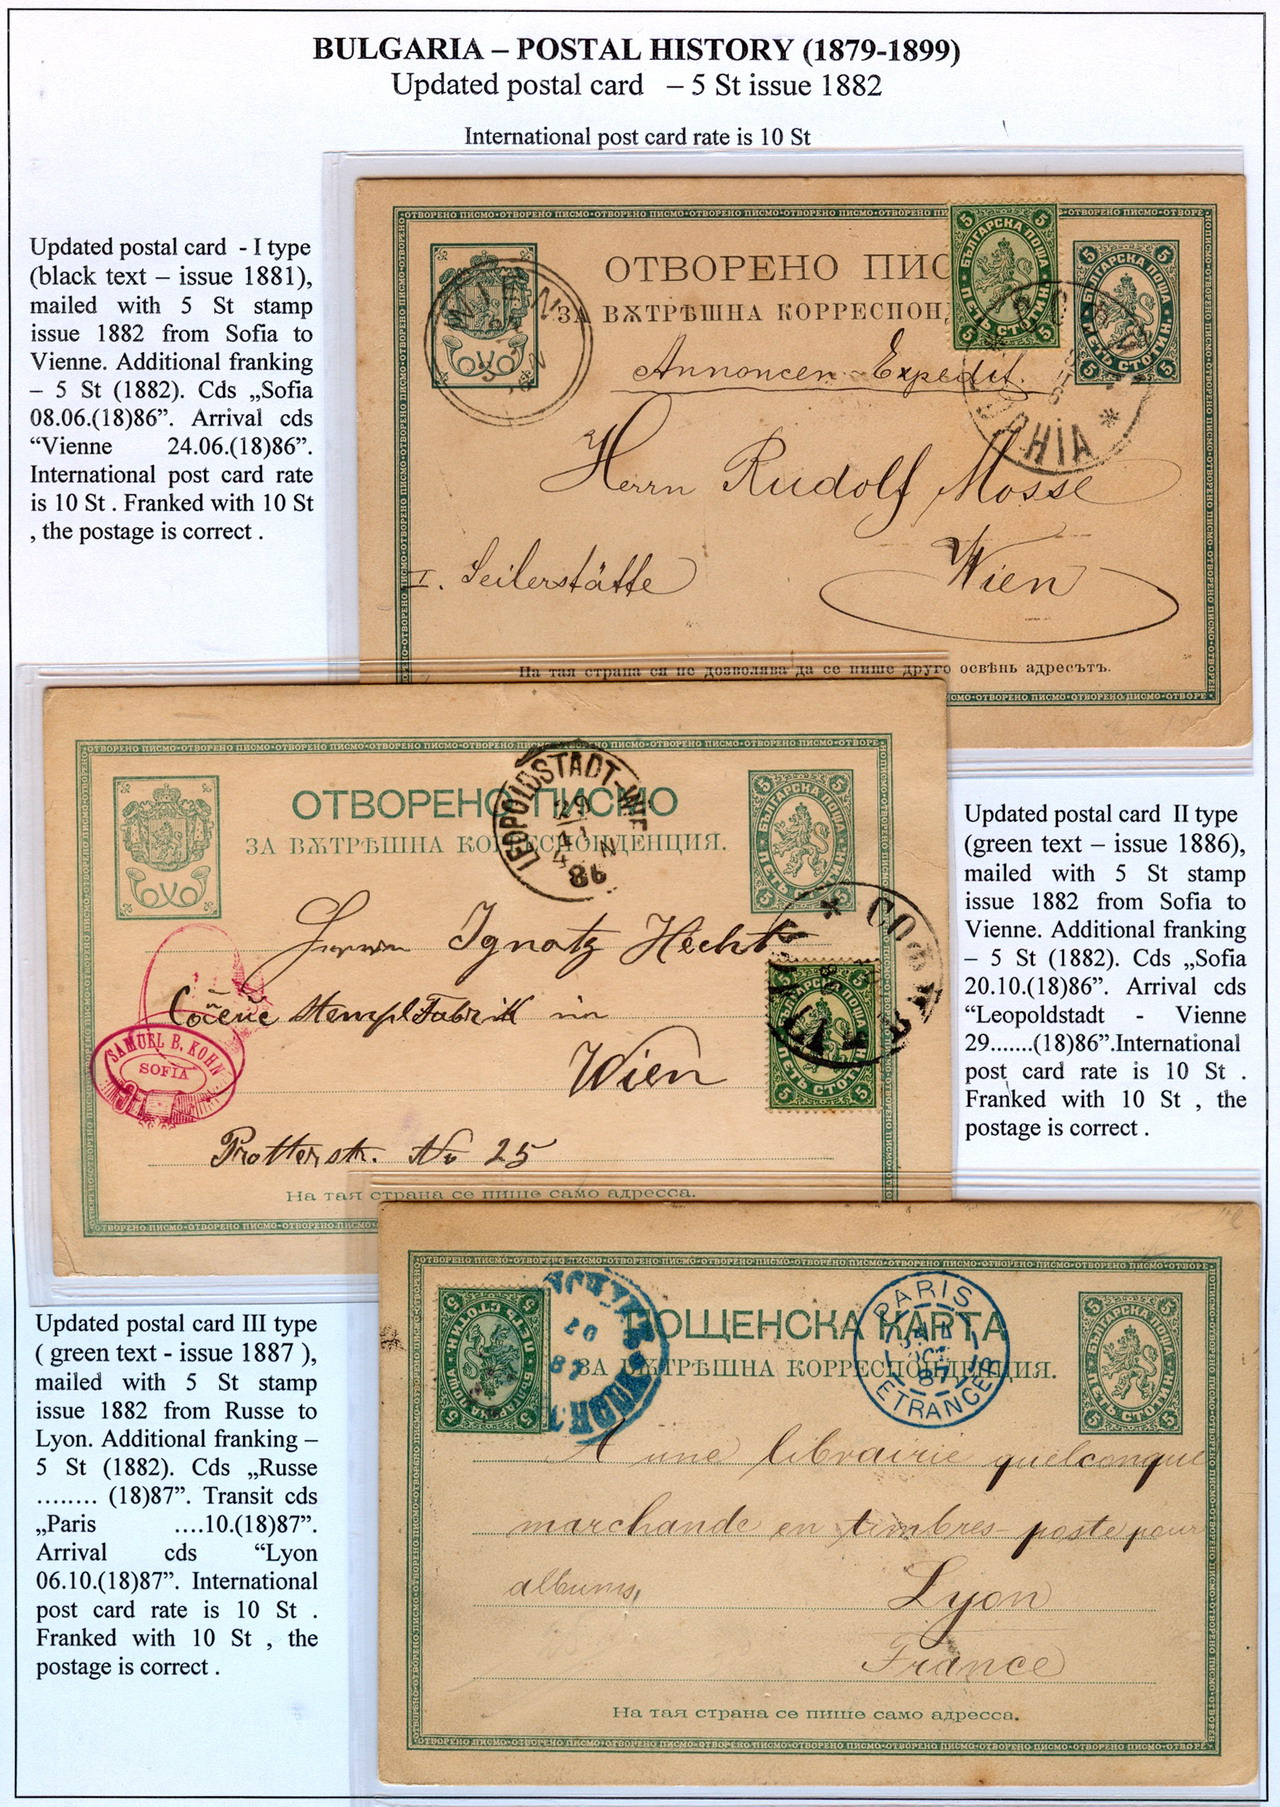 BULGARIA – POSTAL HISTORY (1879-1899)
Updated postal card – 5 St issue 1882
International post card rate is 10 St
Updated postal card - I type
(black text – issue 1881),
mailed with 5 St stamp
issue 1882 from Sofia to
Vienne. Additional franking
– 5 St (1882). Cds „Sofia
08.06.(18)86”. Arrival cds
“Vienne 24.06.(18)86”.
International post card rate
is 10 St . Franked with 10 St
, the postage is correct .
ОТВОРЕНО ПИС
ЗА ВѪТРѢШНА КОРРЕСПОНД
БЪЛГАРСКА ПОЩА
ПЕТЬ СТОТИН.
5 5 5 5
БЪЛГАРСКА ПОЩА
ПЕТЬ СТОТИН.
5 5 5 5
WIEN
Annoncen-Expedit.
Herrn Rudolf Mosse
I. Seilerstätte
Wien
На тая страна ся не дозволява да се пише друго освѣнь адресътъ.
ОТВОРЕНО ПИСМО
ЗА ВѪТРѢШНА КОРРЕСПОНДЕНЦИЯ.
БЪЛГАРСКА ПОЩА
ПЕТЬ СТОТИН.
5 5 5 5
LEOPOLDSTADT-WIE
29
86
Herrn Ignatz Hecht
StempelFabrik in
Wien
SAMUEL B. KOHN
SOFIA
СОФИЯ
БЪЛГАРСКА ПОЩА
ПЕТЬ СТОТИН.
5 5 5 5
Pratterstr. No 25
На тая страна се пише само адресса.
Updated postal card II type
(green text – issue 1886),
mailed with 5 St stamp
issue 1882 from Sofia to
Vienne. Additional franking
– 5 St (1882). Cds „Sofia
20.10.(18)86”. Arrival cds
“Leopoldstadt - Vienne
29.......(18)86”.International
post card rate is 10 St .
Franked with 10 St , the
postage is correct .
Updated postal card III type
( green text - issue 1887 ),
mailed with 5 St stamp
issue 1882 from Russe to
Lyon. Additional franking –
5 St (1882). Cds „Russe
........ (18)87”. Transit cds
„Paris ....10.(18)87”.
Arrival cds “Lyon
06.10.(18)87”. International
post card rate is 10 St .
Franked with 10 St , the
postage is correct .
ПОЩЕНСКА КАРТА
ЗА ВѪТРѢШНА КОРРЕСПОНДЕНЦИЯ.
БЪЛГАРСКА ПОЩА
ПЕТЬ СТОТИН.
5 5 5 5
PARIS
87
ETRANGER
БЪЛГАРСКА ПОЩА
ПЕТЬ СТОТИН.
5 5 5 5
A une librairie quelconque
marchande en timbres-poste pour
albums,
Lyon
France
На тая страна се пише само адресса.